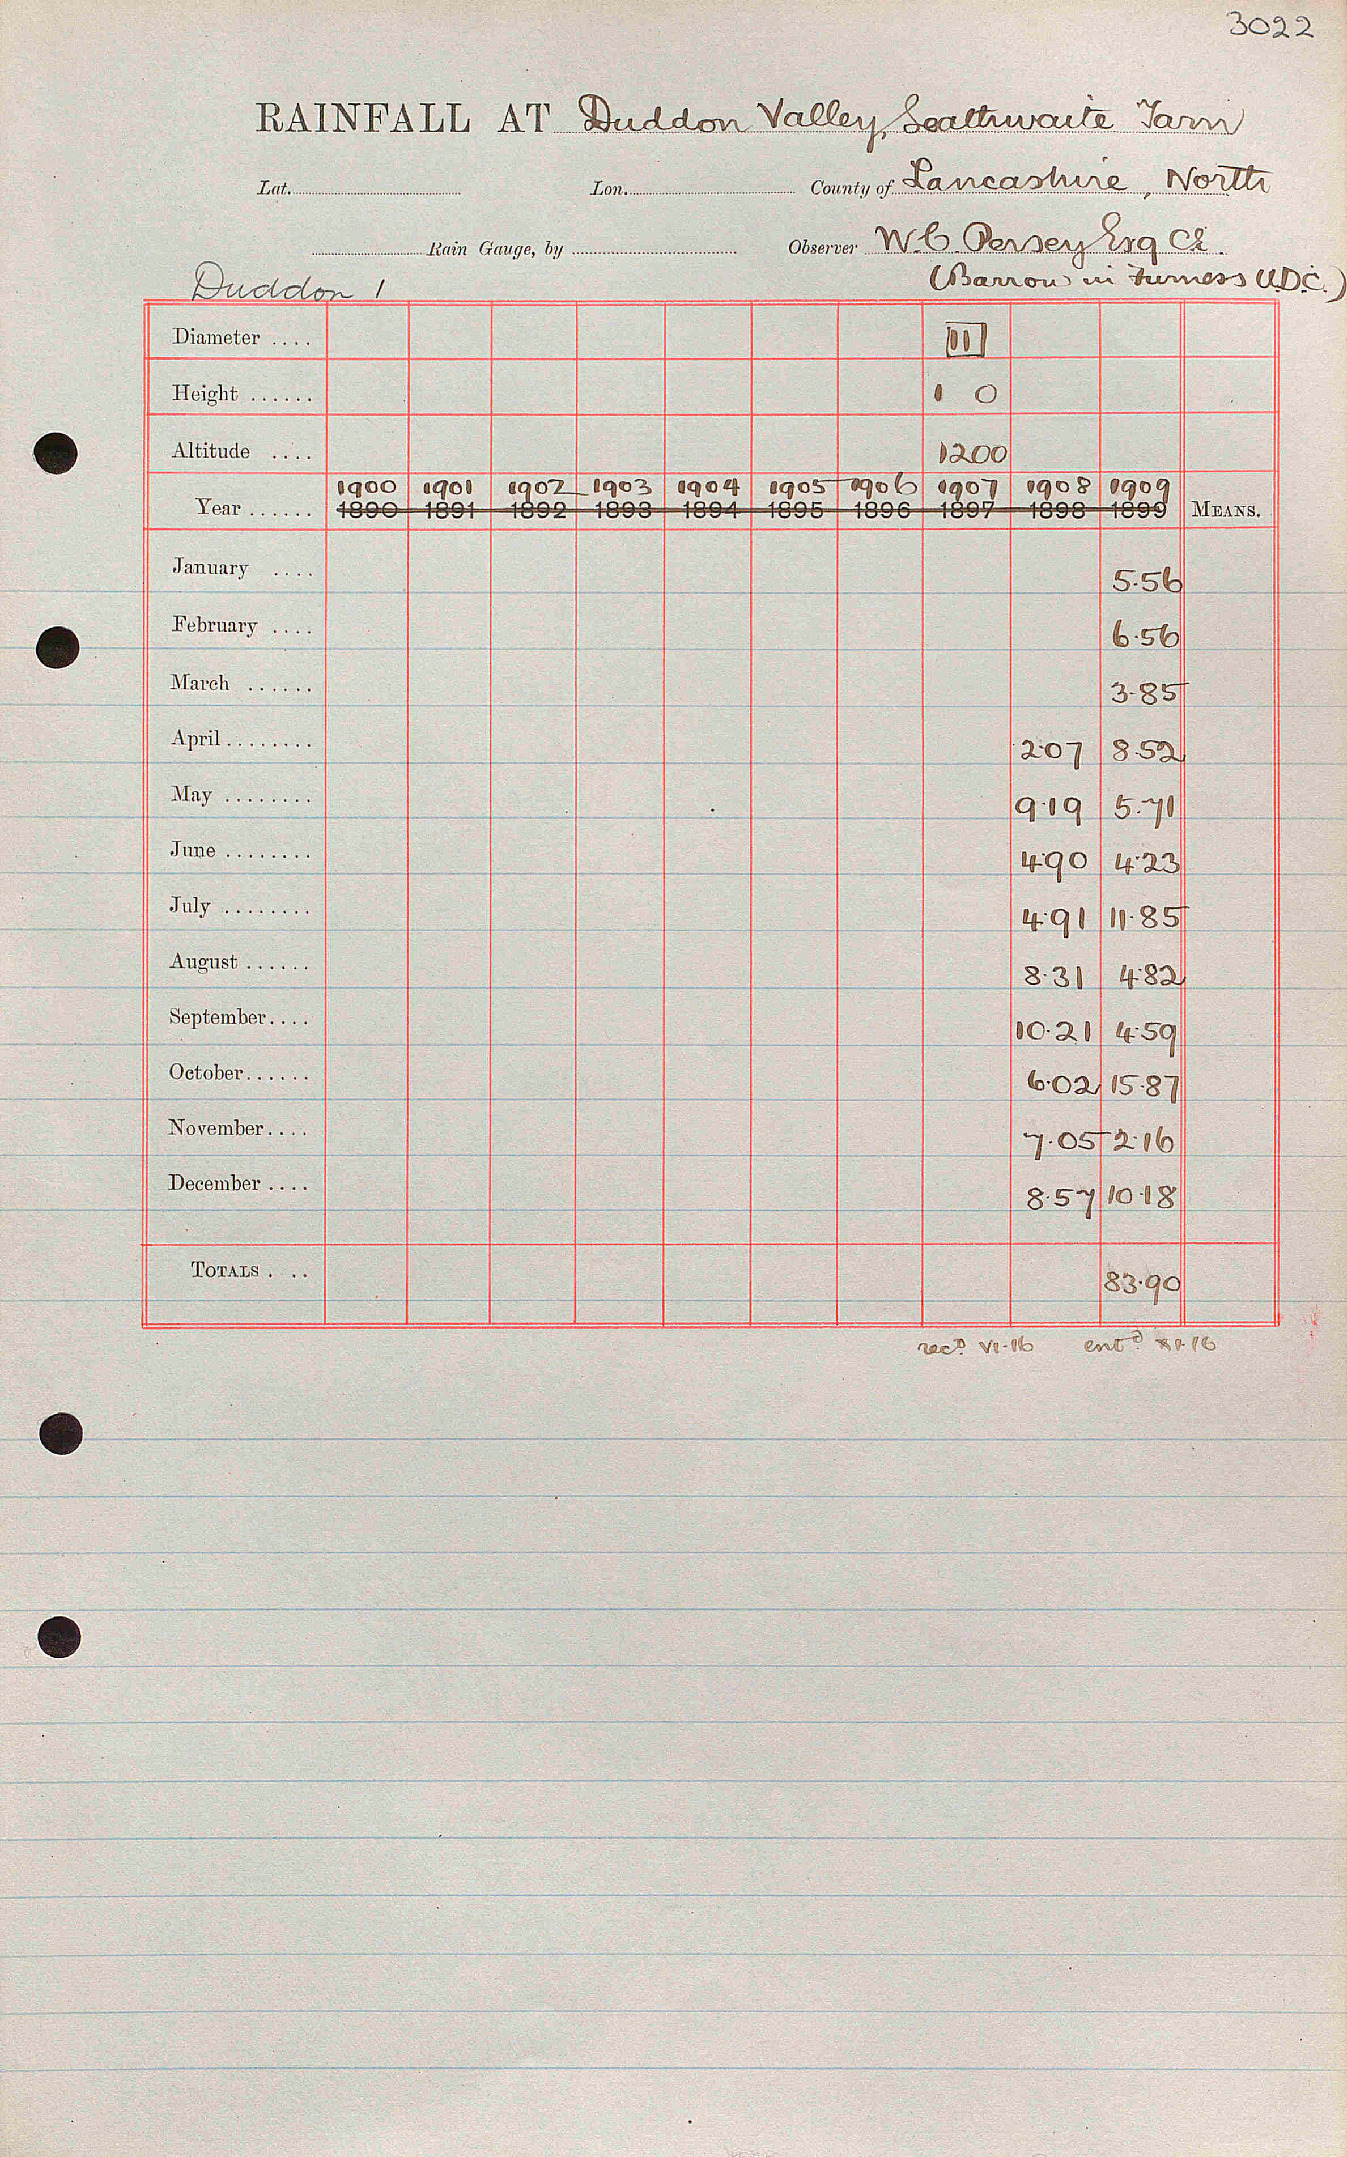 3022
RAINFALL AT Duddon Valley, Seathwaite Tarn
Lat. Lon. County of Lancashire, North
Rain Gauge, by Observer W.C. Persey Esq CE.
Duddon 1 (Barrow in Furness U.D.C.)
Diameter ....
Height ...... 1 0
Altitude .... 1200
1900 1901 1902 1903 1904 1905 1906 1907 1908 1909
Year ...... 1890 1891 1892 1893 1894 1895 1896 1897 1898 1899 MEANS.
January .... 5.56
February .... 6.56
March ...... 3.85
April ........ 2.07 8.52
May ........ 9.19 5.71
June ........ 4.90 4.23
July ........ 4.91 11.85
August ...... 8.31 4.82
September.... 10.21 4.59
October...... 6.02 15.87
November.... 7.05 2.16
December .... 8.57 10.18
TOTALS .... 83.90
recd. VI.16 entd. XI.16